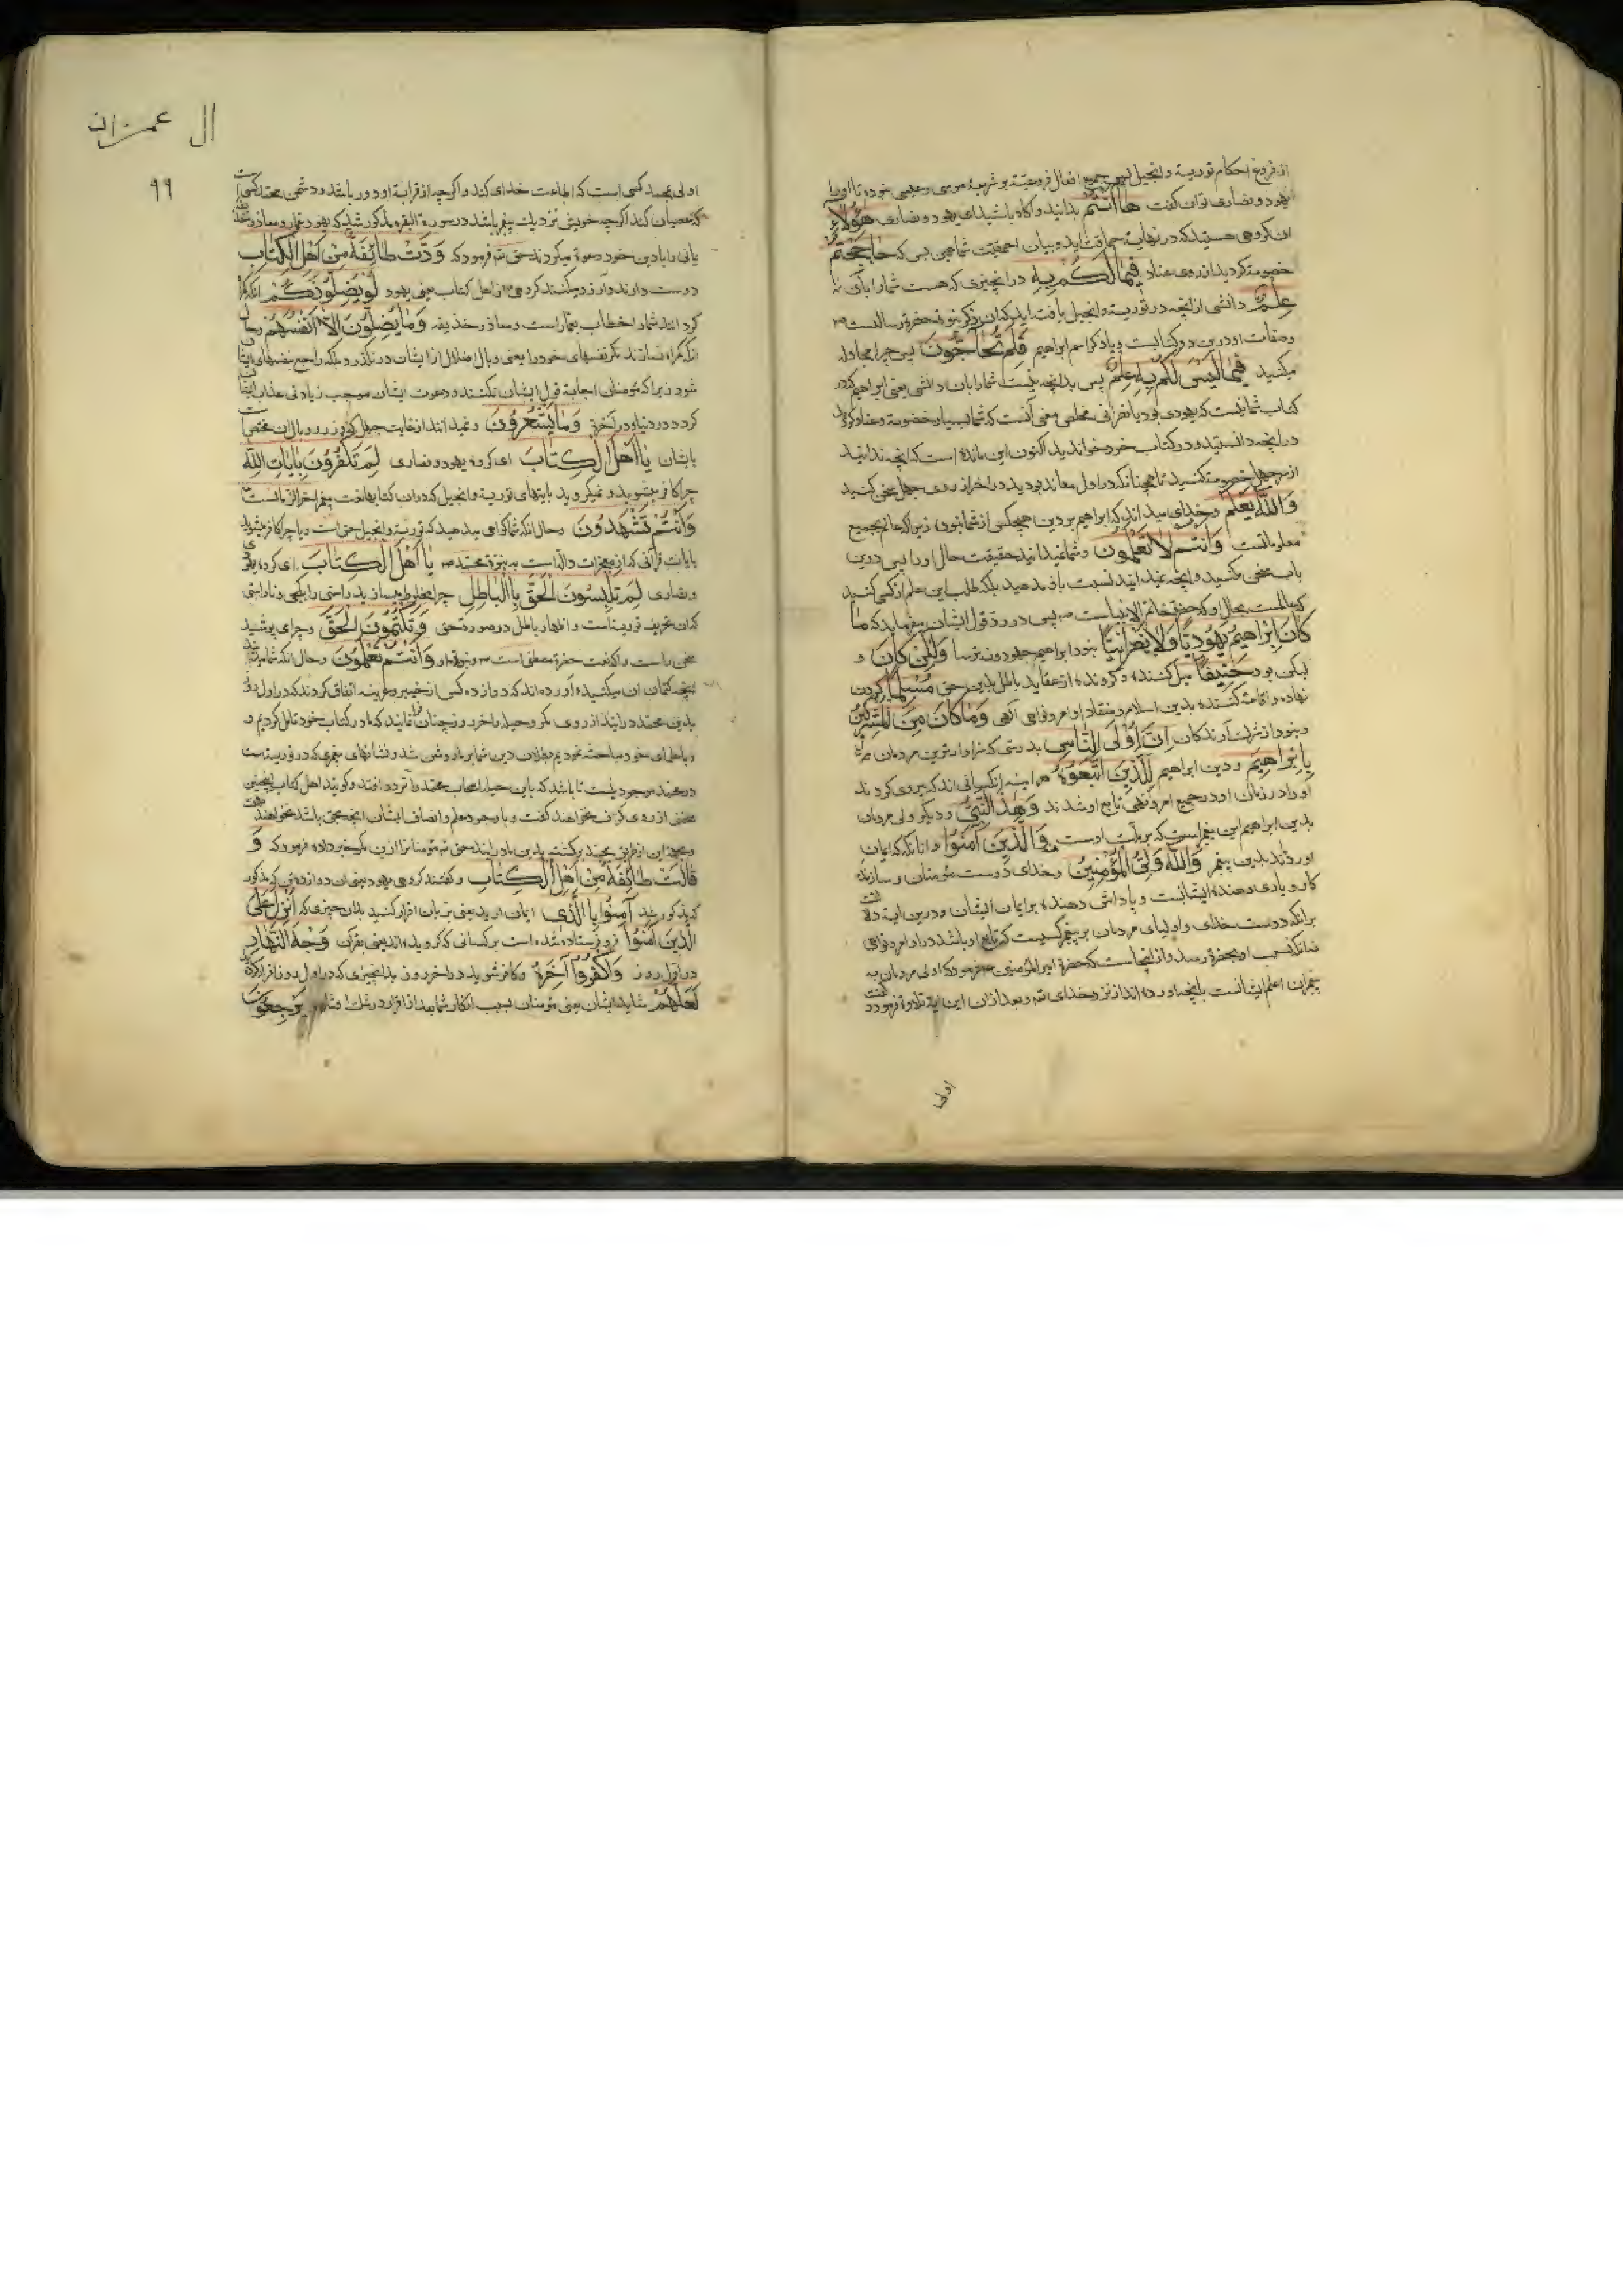 از فروع احکام توریة و انجیل جمیع افعال فروعیّه بر شریعة موسی و عیسی خوده تا او را
یهود و نصاری توان گفت هَا أَنْتُمْ بدانید و آگاه باشید ای یهود و نصاری هٰؤُلَاءِ
آن گروهی هستید که در نهایة حماقت اید و بیان احمقیت شما همین بس که حَاجَجْتُمْ
خصومت کردید از روی عناد فِيمَا لَكُمْ بِهِ در آنچیزی که هست شما را بآن
عِلْمٌ دانشی از آنچه در توریة و انجیل یافته اید که آن ذکر نبوة حضرة رسالتست
و صفات او در این دو کتابست و یاد کر اسم ابراهیم فَلِمَ تُحَاجُّونَ پس چرا مجادله
میکنید فِيمَا لَيْسَ لَكُمْ بِهِ عِلْمٌ پس بدانچه نیست شما را بآن دانشی یعنی ابراهیم که در
کتاب شما نیست که یهودی بود یا نصرانی مخلص معنی آنست که شما بسیار خصومة و عناد کردید
در آنچه دانستید و در کتاب خود خواندید اکنون این مانده است که آنچه ندانید
از سر جهل خصومت کنید تا همچنانکه در اول معاند بودید در آخر از روی جهل سخن کنید
وَاللَّهُ يَعْلَمُ و خدای میداند که ابراهیم بر دین هیچکس از شما نبود زیرا که عالم بجمیع
معلوماتست وَأَنْتُمْ لَا تَعْلَمُونَ و شما نمیدانید حقیقت حال او را پس در این
باب سخن مکنید و آنچه نمیدانید نسبت باو مدهید بلکه طلب این علم از کسی کنید
که عالمست بحال او که حضرة خاتم الانبیاست پس در رد قول ایشان میفرماید که مَا
كَانَ إِبْرَاهِيمُ يَهُودِيًّا وَلَا نَصْرَانِيًّا نبود ابراهیم جهود و نه ترسا وَلَٰكِنْ كَانَ و
لیکن بود حَنِيفًا میل کننده و گرونده از عقاید باطل بدین حق مُسْلِمًا گردن
نهاده و اقامه کننده بدین اسلام و منقاد اوامر و نواهی الهی وَمَا كَانَ مِنَ الْمُشْرِكِينَ
و نبود از شرک آرندگان إِنَّ أَوْلَى النَّاسِ بدرستی که سزاوارترین مردمان
بِإِبْرَاهِيمَ و دین ابراهیم لَلَّذِينَ اتَّبَعُوهُ هر آینه آنکسانی اند که پیروی کردند
او را در زمان او و در جمیع امر و نهی تابع او شدند وَهَٰذَا النَّبِيُّ و دیگر اولی مردمان
بدین ابراهیم این پیغمبر است که بر ملت اوست وَالَّذِينَ آمَنُوا و آنانکه که ایمان
آوردند بدین پیغمبر وَاللَّهُ وَلِيُّ الْمُؤْمِنِينَ و خدای دوست مؤمنان و سازنده
کار و یاری دهنده ایشانست و پاداش دهنده بر ایمان ایشان و در این آیه دلالت
بر آنکه دوست خدای و اولیای مردمان بر پیغمبر کسیست که تابع او باشد در اوامر و نواهی
نه آنکه نسب او بحضرة رسد و از اینجاست که حضرة امیر المؤمنین فرمود که اولی مردمان به
پیغمبران اعلم ایشانست بآنچه آورده اند از نزد خدای و بعد از آن این آیه تلاوة فرمود گفت
اولی
ال عمران
٩٩
اولی بمحمد کسی است که اطاعت خدای کند و اگرچه از قرابة او دور باشد و دشمن محمد کسی است
که عصیان کند اگرچه خویش نزدیک پیغمبر باشد در سورة البقره مذکور شد که یهود عمار و معاذ و حذیفه
یمانی را بادین خود دعوة میکردند حق فرمود که وَدَّتْ طَائِفَةٌ مِنْ أَهْلِ الْكِتَابِ
دوست دارند و آرزو میکنند گروهی از اهل کتاب یعنی یهود لَوْ يُضِلُّونَكُمْ آنکه گمراه
گردانند شما را خطاب بعمار است و معاذ و حذیفه وَمَا يُضِلُّونَ إِلَّا أَنْفُسَهُمْ و حال
آنکه گمراه نسازند مگر نفسهای خود را یعنی وبال اضلال از ایشان در نگذرد و بلکه راجع بنفسهای ایشان
شود زیرا که مؤمنان اجابة قول ایشان نکنند و دعوت ایشان موجب زیادتی عذاب ایشان
گردد در دنیا و در آخرة وَمَا يَشْعُرُونَ و نمیدانند از غایت جهل که وزر و وبال آن مختص است
بایشان يَا أَهْلَ الْكِتَابِ ای گروه یهود و نصاری لِمَ تَكْفُرُونَ بِآيَاتِ اللَّهِ
چرا کافر میشوید و نمیگروید بایتهای توریة و انجیل که در آن کتابها نعت پیغمبر آخرالزمانست
وَأَنْتُمْ تَشْهَدُونَ و حال آنکه شما گواهی میدهید که توریة و انجیل حق است و یا چرا کافر میشوید
بایات قرآنی که از معجزات داله است به نبوة محمد يَا أَهْلَ الْكِتَابِ ای گروه یهودی
و نصاری لِمَ تَلْبِسُونَ الْحَقَّ بِالْبَاطِلِ چرا مخلوط میسازید راستی را بکجی و ناراستی
که آن تحریف توریة است و اظهار باطل در صورة حق وَتَكْتُمُونَ الْحَقَّ و چرا می پوشید
سخن راست را که نعت حضرة مصطفی است و نبوة او وَأَنْتُمْ تَعْلَمُونَ و حال آنکه شما میدانید
آنچه کتمان آن میکنید آورده اند که دوازده کس از خیبر و عرینه اتفاق کردند که در اول روز
بدین محمد در آیند از روی مکر و حیله و آخر روز چنان نمایند که ما در کتاب خود تأمل کردیم و
و با علمای خود مباحثه نمودیم بطلان دین شما بر ما روشن شد و نشانهای پیغمبری که در توریة است
در محمد موجود نیست تا باشد که باین حیله اصحاب محمد را تردد افتد و گویند اهل کتاب اینچنین
سخنی از روی گزاف نخواهند گفت و با وجود علم و انصاف ایشان آنچه حق باشد نخواهند گفت
بدین ما در آیند حق مؤمنان را ازین مکر خبر داده فرمود که وَ
قَالَتْ طَائِفَةٌ مِنْ أَهْلِ الْكِتَابِ و گفتند گروهی یهود یعنی آن دوازده تن که مذکور
که مذکور شد آمِنُوا بِالَّذِي ایمان آرید یعنی بزبان اقرار کنید بدان چیزی که أُنْزِلَ عَلَى
الَّذِينَ آمَنُوا فرو فرستاده شده است بر کسانی که گرویده اند یعنی بقرآن وَجْهَ النَّهَارِ
در اول روز وَاكْفُرُوا آخِرَهُ و کافر شوید در آخر روز بدانچیزی که در اول روز باقرار کرده
لَعَلَّهُمْ شاید ایشان یعنی مؤمنان بسبب انکار شما بعد از اقرار در شک افتاده يَرْجِعُونَ